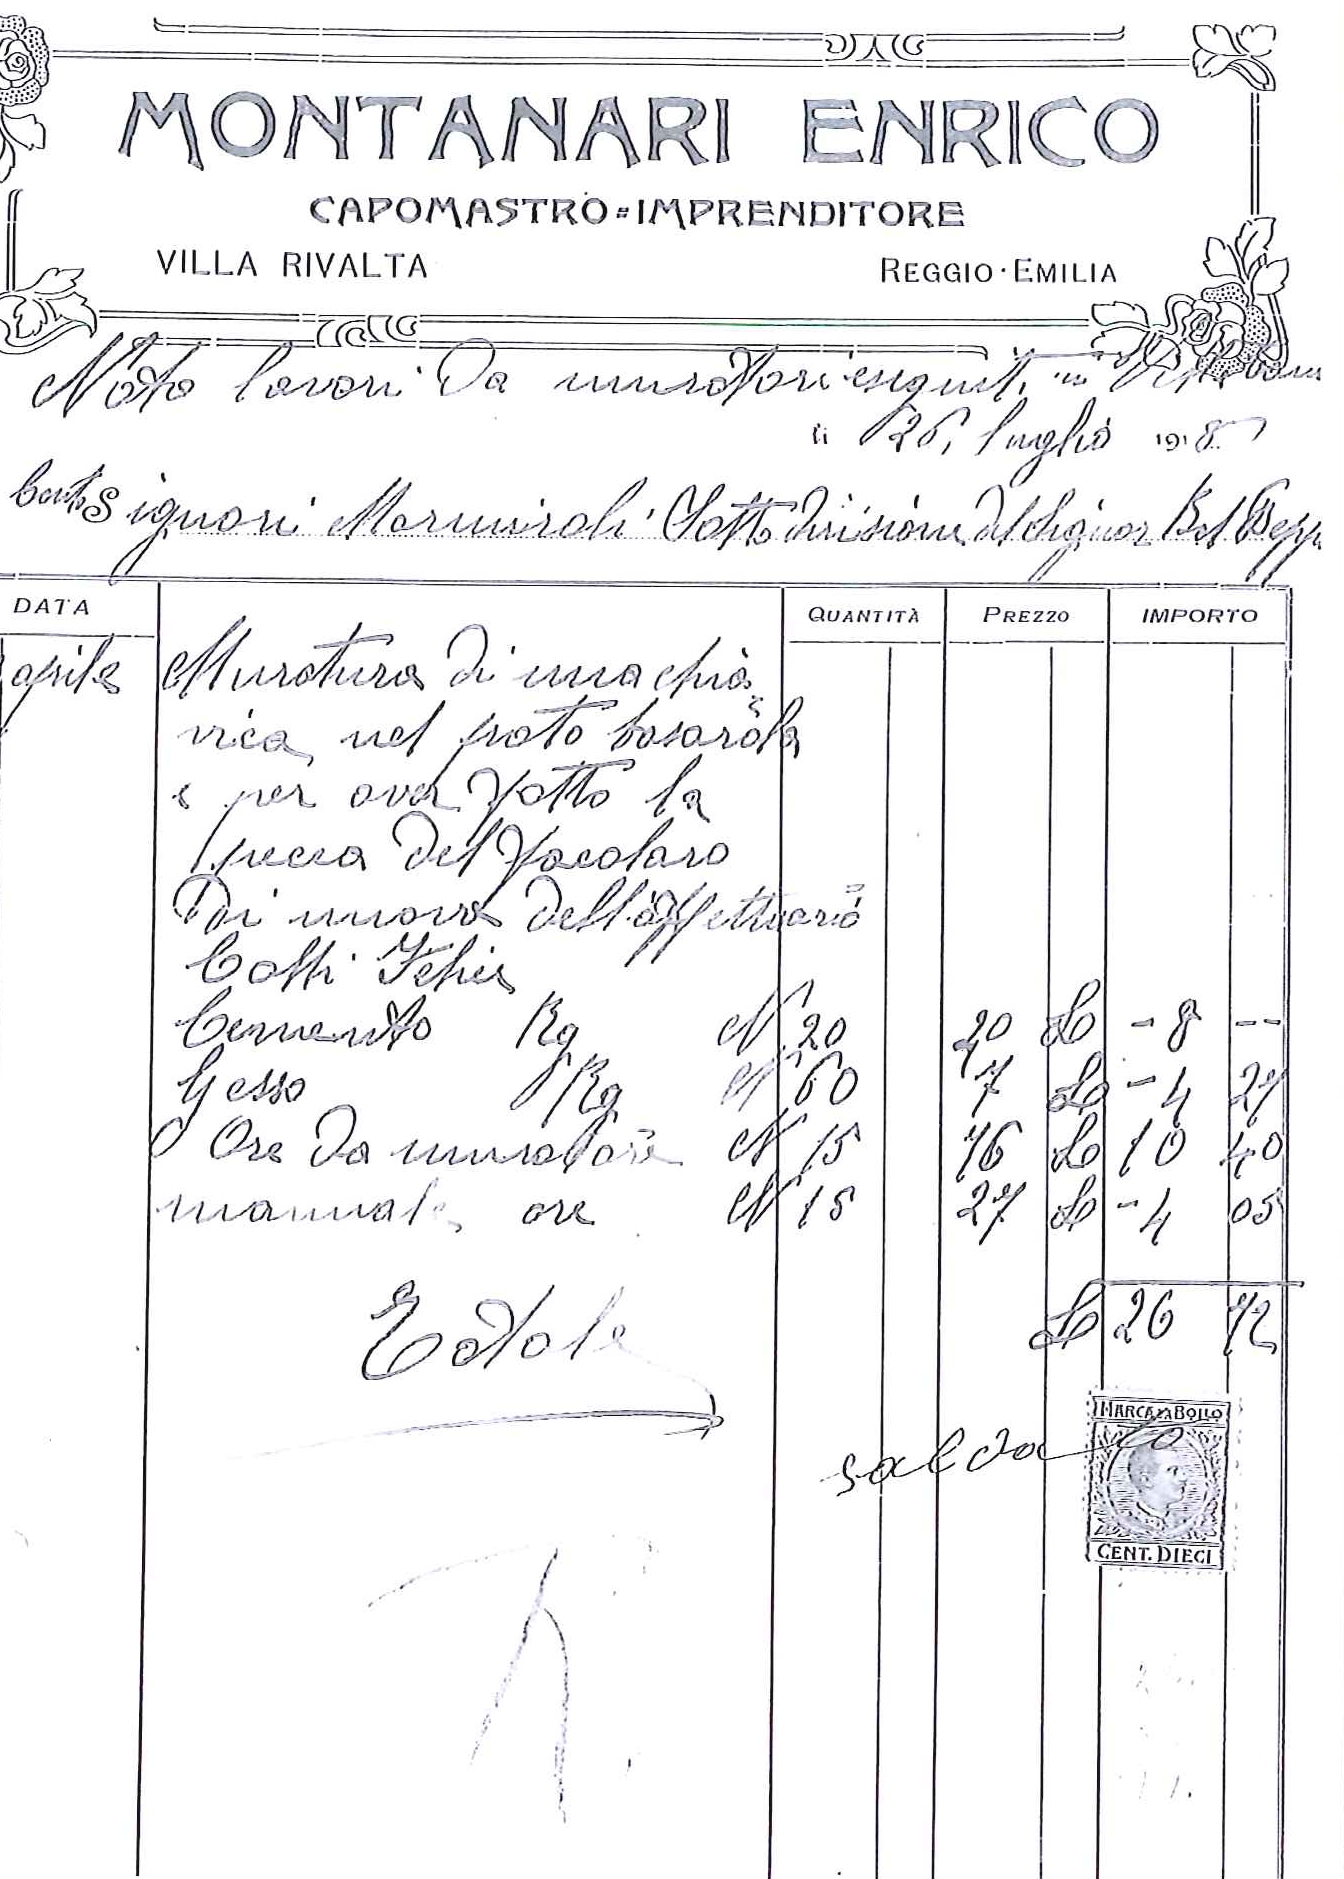 MONTANARI ENRICO
CAPOMASTRO=IMPRENDITORE
VILLA RIVALTA
REGGIO·EMILIA
Nota lavori da muratori eseguiti in
li 26, luglio 1918
Signori Marmiroli Sotto divisione del Signor Bel
DATA QUANTITÀ PREZZO IMPORTO
aprile Muratura di una chia
vica nel prato
e per aver fatto la
del
Di nuovo dell'affettuario
Cemento Kg N 20 40 L - 8 --
Gesso Kg N 60 7 L - 4 27
Ore da muratore N 15 76 L 10 40
manuale ore N 15 27 L - 4 05
Totale L 26 72
saldato
MARCA DA BOLLO
CENT. DIECI